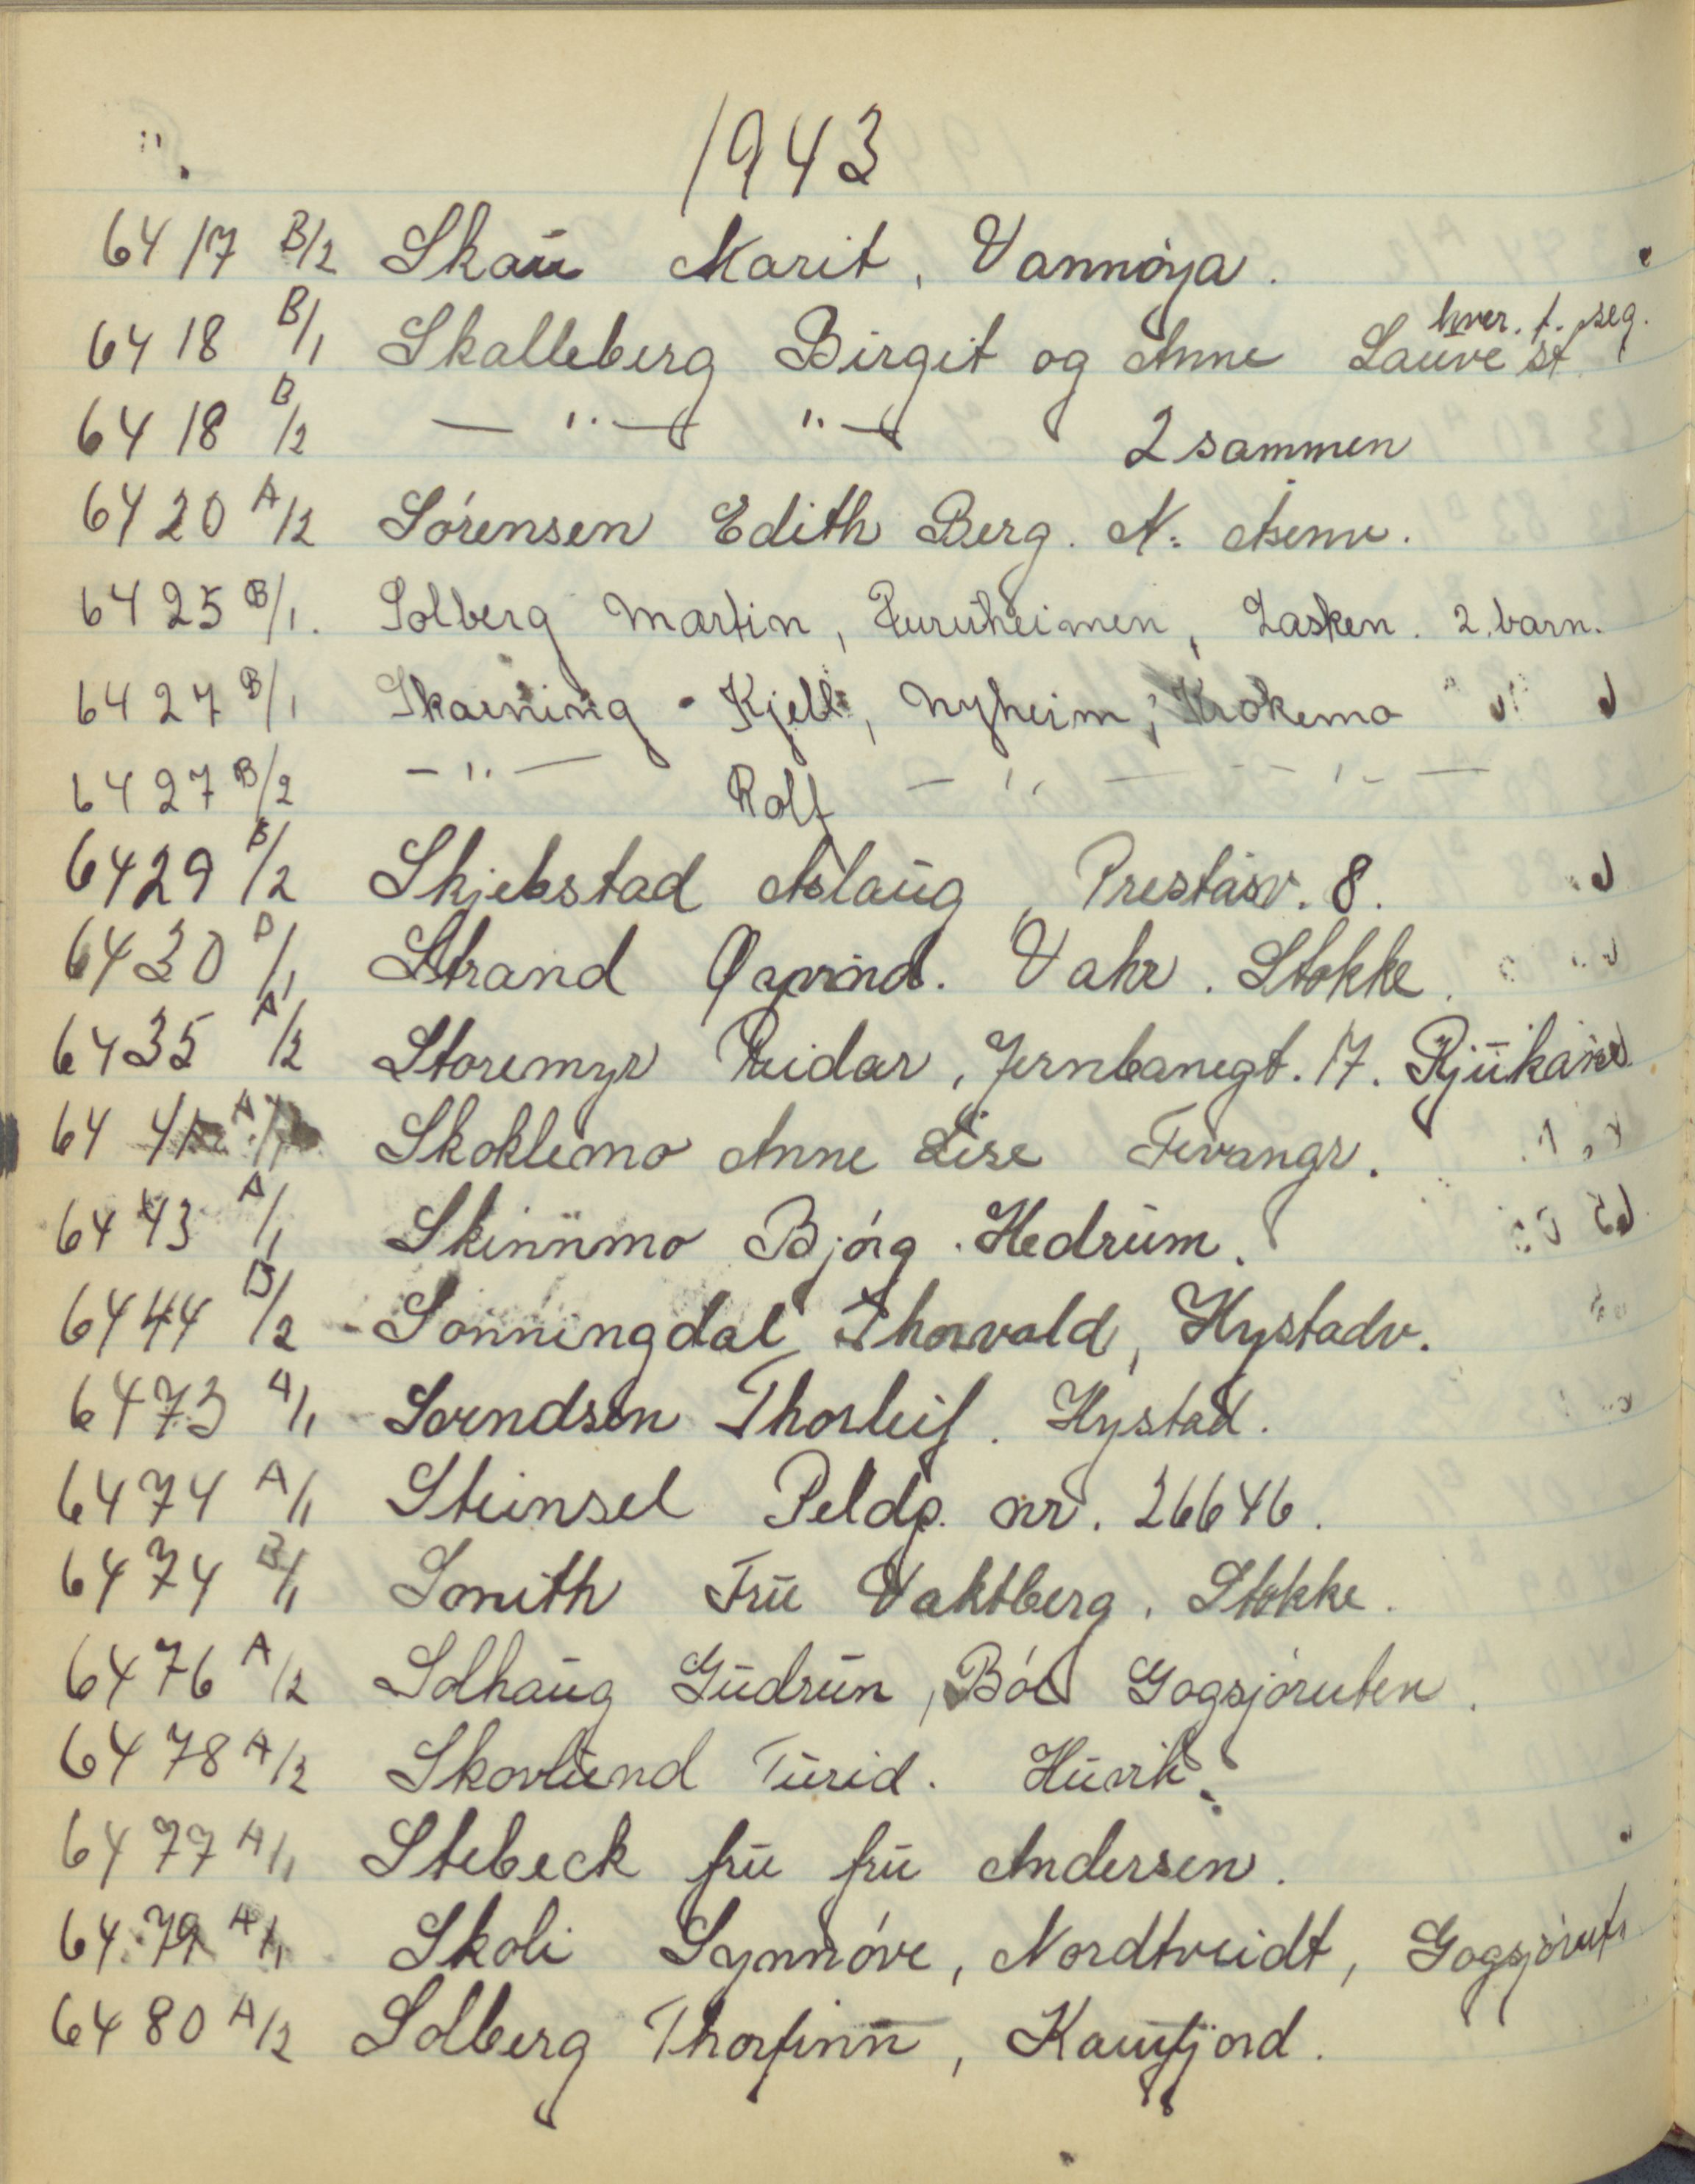 1943
6417 B/2 Skau Marit, Vannøya.
hver. f. seg.
6418 B/1 Skalleberg Birgit og Anne Lauve st.
6418 B/2 — " — " — 2 sammen
6420 A/2 Sørensen Edith Berg. N.
6425 B/1. Solberg Martin, Furuheimen, Lasken. 2 barn.
6427 B/1 Skarning Kjell, Nyheim, Krokemo
6427 B/2 — " — Rolf — " — — " —
6429 B/2 Skjelstad Aslaug, Preståsv. 8.
6430 B/1 Strand Øyvind. Vahr. Stokke.
6435 A/2 Storemyr Reidar, Jernbanegt. 17. Rjukan
64 Skoklemo Anne Lise Fevangr.
6443 A/1 Skinnmo Bjørg. Hedrum.
6444 B/2 Sønningdal Thorvald, Hystadv.
6473 A/1 Svendsen Thorleif. Hystad.
6474 A/1 Steinsel Feldp. nr. 26646.
6474 B/1 Smith Fru Vaktberg. Stokke.
6476 A/2 Solhaug Gudrun, Bøe Gogsjøruten.
6478 A/2 Skovlund Turid. Huvik.
6477 A/1 Stebeck fru fru Andersen.
6479 A/1 Skoli Synnøve, Nordtveidt, Gogsjørut.
6480 A/2 Solberg Thorfinn, Kamfjord.